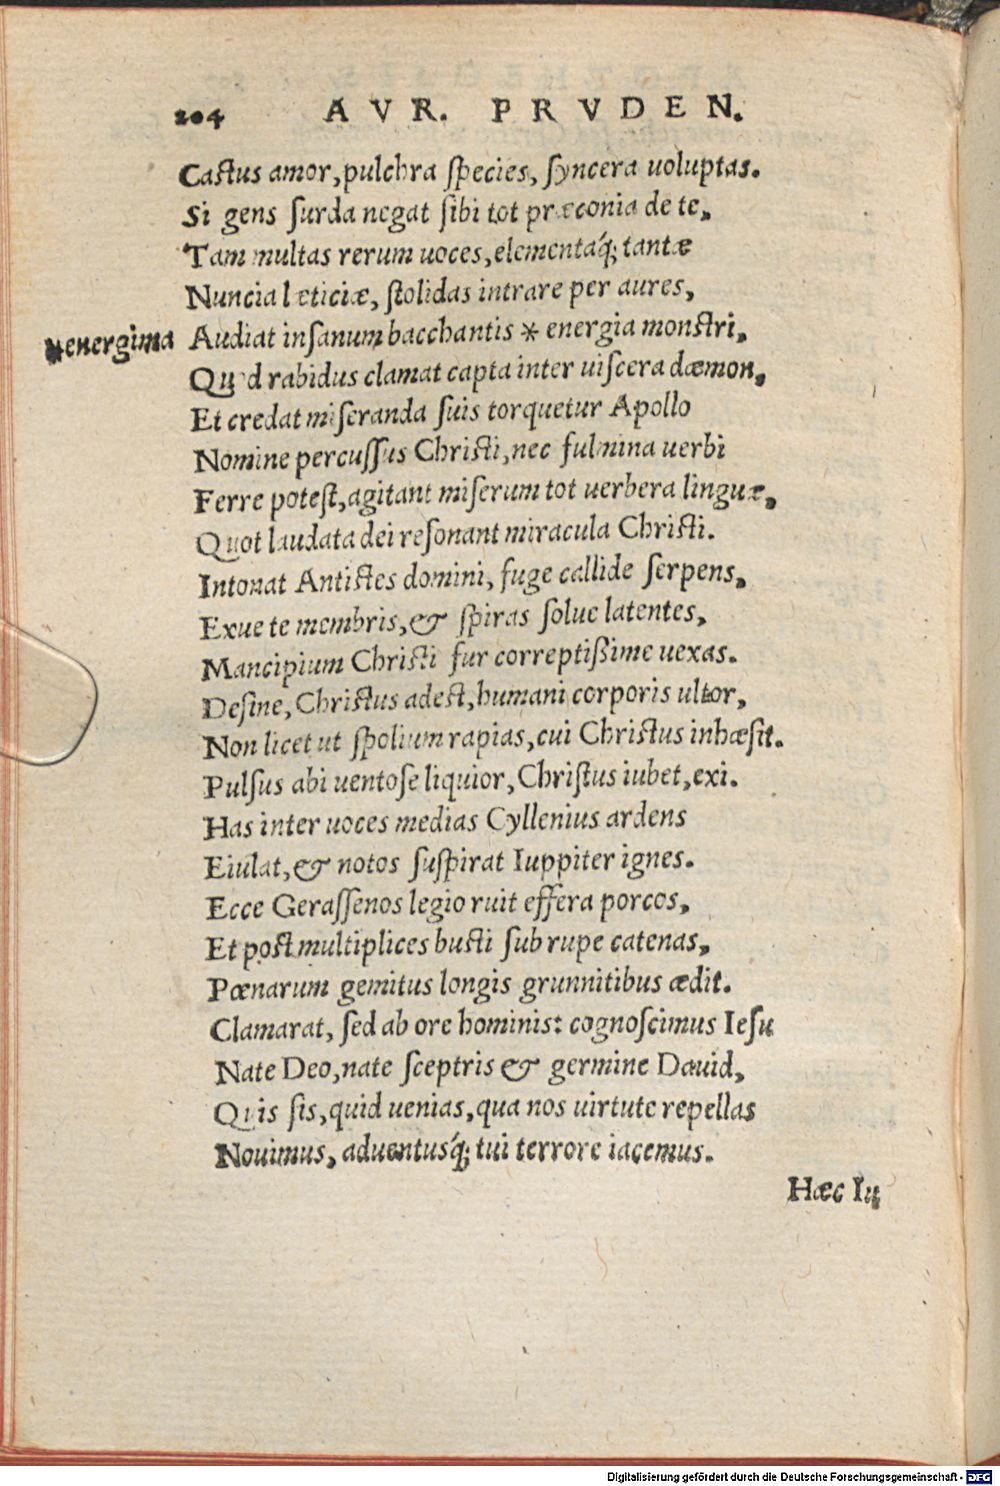 204 AVR. PRVDEN.
Castus amor, pulchra species, syncera uoluptas.
Si gens surda negat sibi tot præconia de te,
Tam multas rerum uoces, elementaq́; tantæ
Nuncia læticiæ, stolidas intrare per aures,
*energima Audiat insanum bacchantis * energia monstri,
Quod rabidus clamat capta inter uiscera dæmon,
Et credat miseranda suis torquetur Apollo
Nomine percussus Christi, nec fulmina uerbi
Ferre potest, agitant miserum tot uerbera linguæ,
Quot laudata dei resonant miracula Christi.
Intonat Antistes domini, fuge callide serpens,
Exue te membris, & spiras solue latentes,
Mancipium Christi fur correptißime uexas.
Desine, Christus adest, humani corporis ultor,
Non licet ut spolium rapias, cui Christus inhæsit.
Pulsus abi uentose liquior, Christus iubet, exi.
Has inter uoces medias Cyllenius ardens
Eiulat, & notos suspirat Iuppiter ignes.
Ecce Gerassenos legio ruit effera porcos,
Et post multiplices busti sub rupe catenas,
Pœnarum gemitus longis grunnitibus ædit.
Clamarat, sed ab ore hominis: cognoscimus Iesu
Nate Deo, nate sceptris & germine Dauid,
Quis sis, quid uenias, qua nos uirtute repellas
Nouimus, aduentusq́; tui terrore iacemus.
Hæc Iu
Digitalisierung gefördert durch die Deutsche Forschungsgemeinschaft - DFG